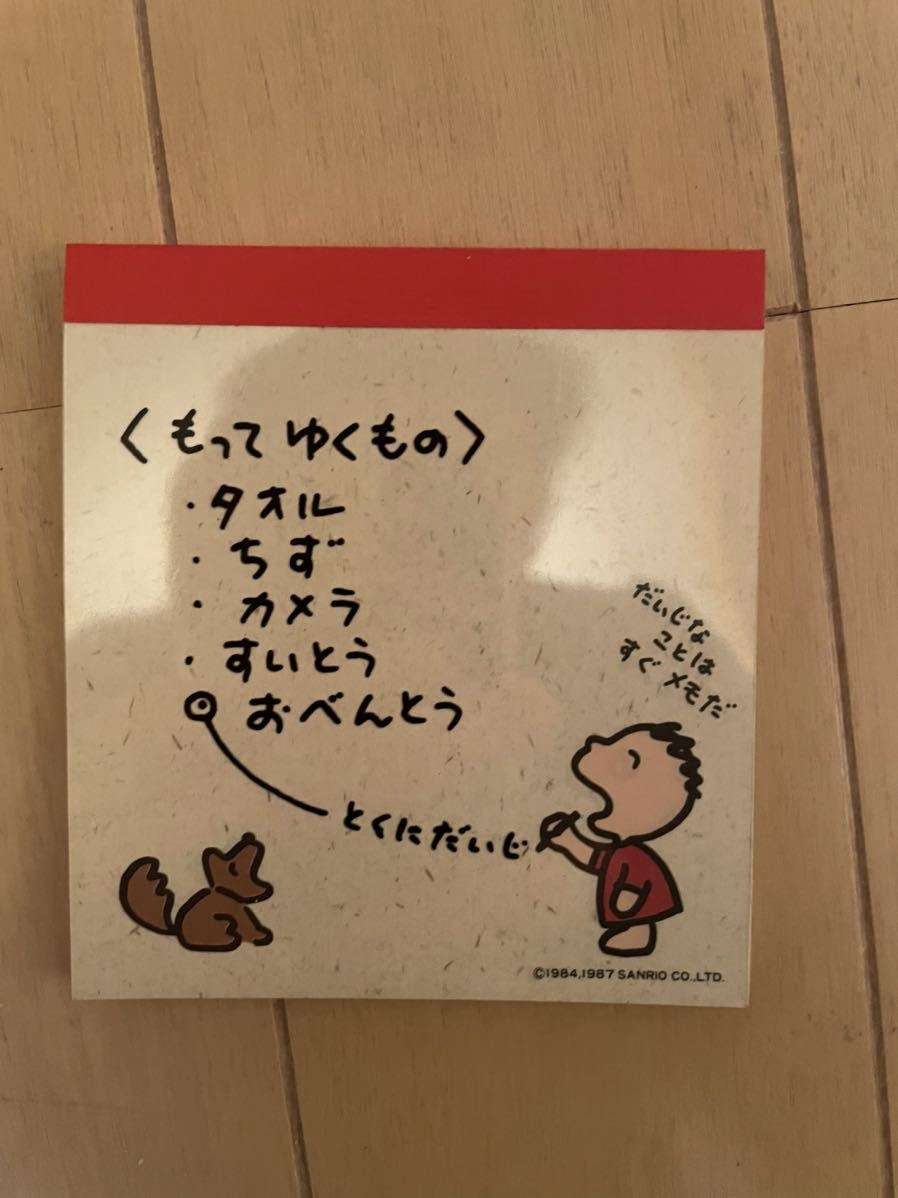 〈もってゆくもの〉
・タオル
・ちず
・カメラ
・すいとう
◎おべんとう
とくにだいじ
だいじな
ことは
すぐメモだ
©1984,1987 SANRIO CO.,LTD.